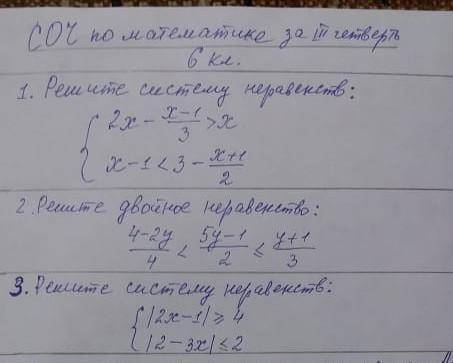 СОЧ по математике за III четверть
6 кл.
1. Решите систему неравенств:
{ 2x - (x-1)/3 > x
x - 1 < 3 - (x+1)/2
2. Решите двойное неравенство:
(4-2y)/4 < (5y-1)/2 ≤ (y+1)/3
3. Решите систему неравенств:
{ |2x-1| ≥ 4
|2-3x| ≤ 2